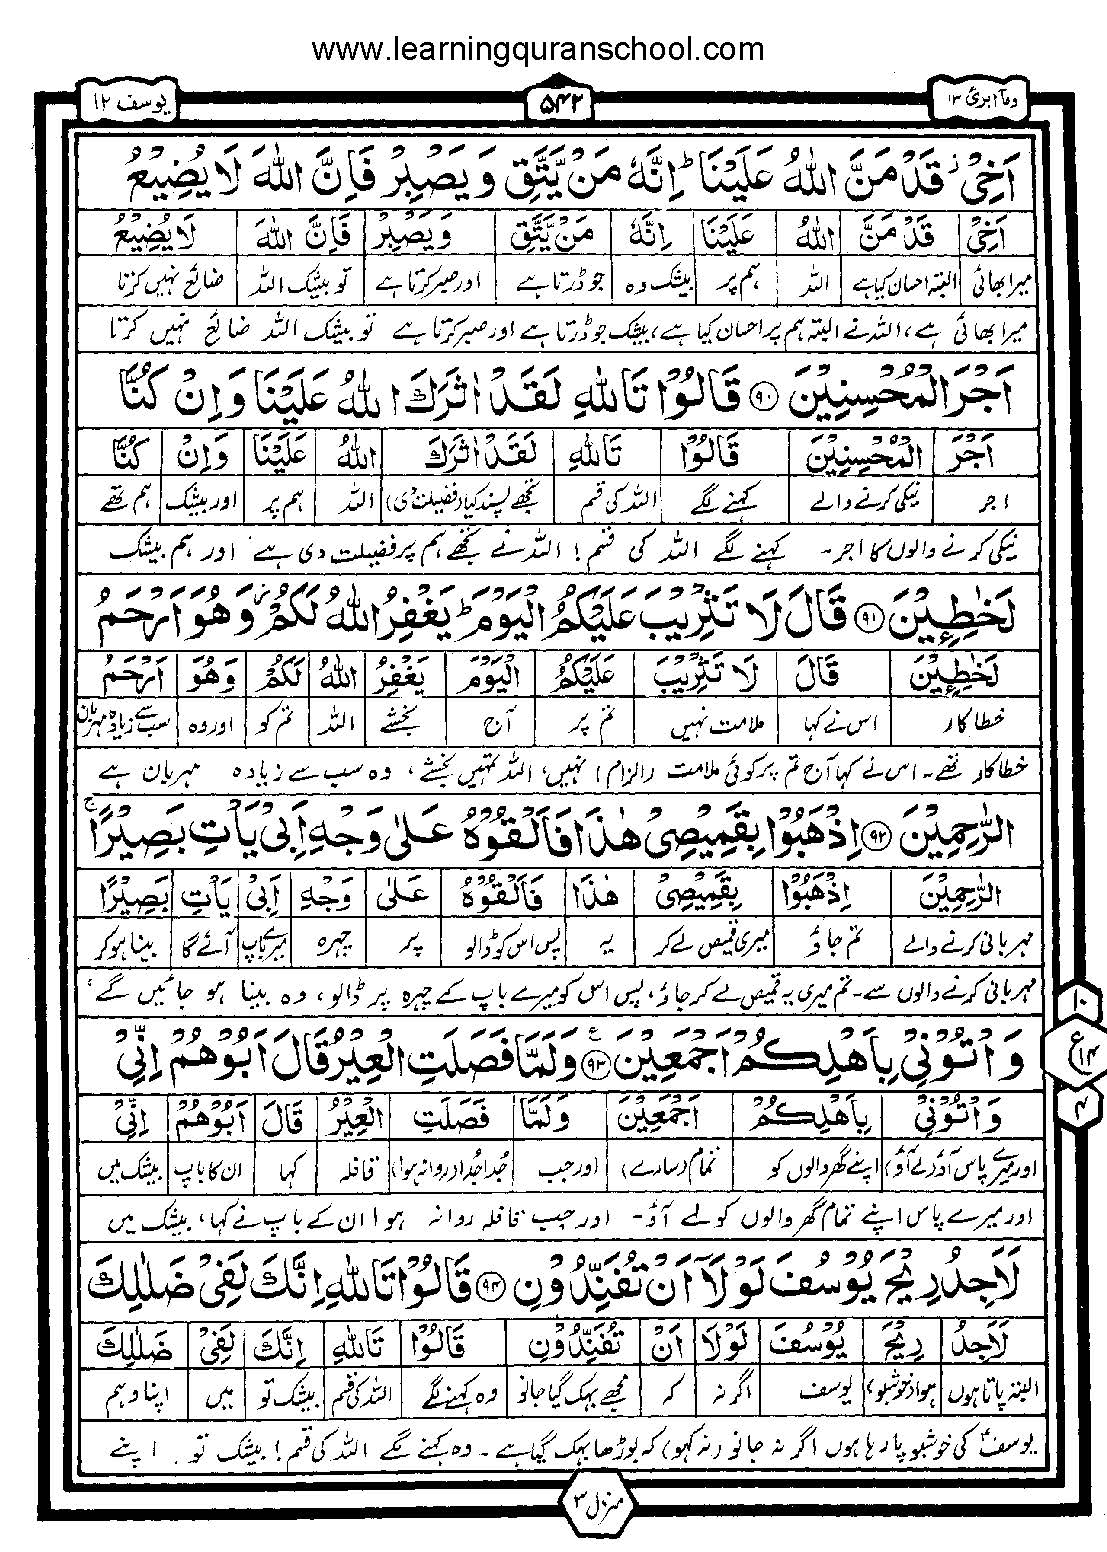 www.learningquranschool.com
وما ابرئ ۱۳
۵۴۲
یوسف ۱۲
اَخِیْ ۫ قَدْ مَنَّ اللّٰهُ عَلَیْنَا ؕ اِنَّهٗ مَنْ یَّتَّقِ وَ یَصْبِرْ فَاِنَّ اللّٰهَ لَا یُضِیْعُ
اَخِیْ قَدْ مَنَّ اللّٰهُ عَلَیْنَا اِنَّهٗ مَنْ یَّتَّقِ وَیَصْبِرْ فَاِنَّ اللّٰهَ لَا یُضِیْعُ
میرا بھائی البتہ احسان کیا ہے اللہ ہم پر بیشک وہ جو ڈرتا ہے اور صبر کرتا ہے تو بیشک اللہ ضائع نہیں کرتا
میرا بھائی ہے، اللہ نے البتہ ہم پر احسان کیا ہے، بیشک جو ڈرتا ہے اور صبر کرتا ہے تو بیشک اللہ ضائع نہیں کرتا
اَجْرَ الْمُحْسِنِیْنَ ۹۰ قَالُوْا تَاللّٰهِ لَقَدْ اٰثَرَكَ اللّٰهُ عَلَیْنَا وَ اِنْ كُنَّا
اَجْرَ الْمُحْسِنِیْنَ قَالُوْا تَاللّٰهِ لَقَدْ اٰثَرَكَ اللّٰهُ عَلَیْنَا وَاِنْ كُنَّا
اجر نیکی کرنے والے کہنے لگے اللہ کی قسم تجھے پسند کیا (فضیلت دی) اللہ ہم پر اور بیشک ہم تھے
نیکی کرنے والوں کا اجر۔ کہنے لگے اللہ کی قسم! اللہ نے تجھے ہم پر فضیلت دی ہے اور ہم بیشک
لَخٰطِـِٕیْنَ ۹۱ قَالَ لَا تَثْرِیْبَ عَلَیْكُمُ الْیَوْمَ ؕ یَغْفِرُ اللّٰهُ لَكُمْ ۫ وَ هُوَ اَرْحَمُ
لَخٰطِـِٕیْنَ قَالَ لَا تَثْرِیْبَ عَلَیْكُمُ الْیَوْمَ یَغْفِرُ اللّٰهُ لَكُمْ وَهُوَ اَرْحَمُ
خطاکار اس نے کہا ملامت نہیں تم پر آج بخشے اللہ تم کو اور وہ سب سے زیادہ مہربان
خطاکار تھے۔ اس نے کہا آج تم پر کوئی ملامت (الزام) نہیں، اللہ تمہیں بخشے، وہ سب سے زیادہ مہربان ہے
الرّٰحِمِیْنَ ۹۲ اِذْهَبُوْا بِقَمِیْصِیْ هٰذَا فَاَلْقُوْهُ عَلٰی وَجْهِ اَبِیْ یَاْتِ بَصِیْرًا ۚ
الرّٰحِمِیْنَ اِذْهَبُوْا بِقَمِیْصِیْ هٰذَا فَاَلْقُوْهُ عَلٰی وَجْهِ اَبِیْ یَاْتِ بَصِیْرًا
مہربانی کرنے والے تم جاؤ میری قمیص لے کر یہ پس اس کو ڈالو پر چہرہ میرے باپ آئے گا بینا ہو کر
مہربانی کرنے والوں سے۔ تم میری یہ قمیص لے کر جاؤ، پس اس کو میرے باپ کے چہرہ پر ڈالو، وہ بینا ہو جائیں گے،
وَ اْتُوْنِیْ بِاَهْلِكُمْ اَجْمَعِیْنَ ۹۳ ع وَ لَمَّا فَصَلَتِ الْعِیْرُ قَالَ اَبُوْهُمْ اِنِّیْ
۱۰
ع ۱۴
۴
وَ اْتُوْنِیْ بِاَهْلِكُمْ اَجْمَعِیْنَ وَلَمَّا فَصَلَتِ الْعِیْرُ قَالَ اَبُوْهُمْ اِنِّیْ
اور میرے پاس آؤ (لے آؤ) اپنے گھر والوں کو تمام (سارے) اور جب جدا ہوا (روانہ ہوا) قافلہ کہا ان کا باپ بیشک میں
اور میرے پاس اپنے تمام گھر والوں کو لے آؤ۔ اور جب قافلہ روانہ ہوا ان کے باپ نے کہا، بیشک میں
لَاَجِدُ رِیْحَ یُوْسُفَ لَوْ لَاۤ اَنْ تُفَنِّدُوْنِ ۹۴ قَالُوْا تَاللّٰهِ اِنَّكَ لَفِیْ ضَلٰلِكَ
لَاَجِدُ رِیْحَ یُوْسُفَ لَوْلَا اَنْ تُفَنِّدُوْنِ قَالُوْا تَاللّٰهِ اِنَّكَ لَفِیْ ضَلٰلِكَ
البتہ پاتا ہوں ہوا (خوشبو) یوسف اگر نہ کہ مجھے بہک گیا جانو وہ کہنے لگے اللہ کی قسم بیشک تو میں اپنا وہم
یوسفؑ کی خوشبو پا رہا ہوں اگر نہ جانو (نہ کہو) کہ بوڑھا بہک گیا ہے۔ وہ کہنے لگے اللہ کی قسم! بیشک تو اپنے
منزل ۳